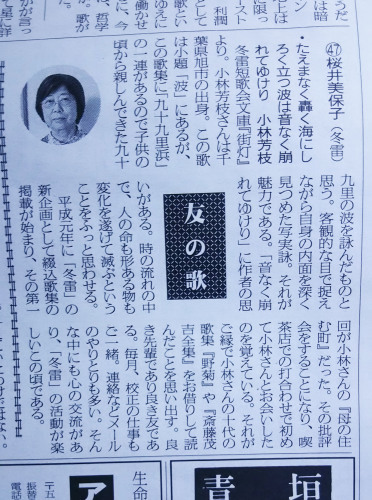 ㊼桜井美保子(冬雷)
・たえまなく轟く海にし
ろく立つ波は音なく崩
れてゆけり 小林芳枝
冬雷短歌会文庫『街灯』
より。小林芳枝さんは千
葉県旭市の出身。この歌
は小題「波」にあるが、
この歌集に「九十九里浜」
の一連があるので子供の
頃から親しんできた九十
友の歌
九里の波を詠んだものと
思う。客観的な目で捉え
ながら自身の内面を深く
見つめた写実詠。それが
魅力である。「音なく崩
れてゆけり」に作者の思
いがある。時の流れの中
で、人の命も形ある物も
変化を遂げて滅ぶという
ことをふっと思わせる。
平成元年に「冬雷」の
新企画として綴込歌集の
掲載が始まり、その第一
回が小林さんの『母の住
む町』だった。その批評
会をすることになり、喫
茶店での打合わせで初め
て小林さんとお会いした
のを覚えている。それが
ご縁で小林さんの十代の
歌集『野菊』や『斎藤茂
吉全集』をお借りして読
んだことを思い出す。良
き先輩であり良き友であ
る。毎月、校正の仕事も
ご一緒。連絡などメール
のやりとりも多い。そん
な中にも心の交流があ
り、「冬雷」の活動が楽
しいこの頃である。
垣
青
生命
ア
〒五
振替
電話